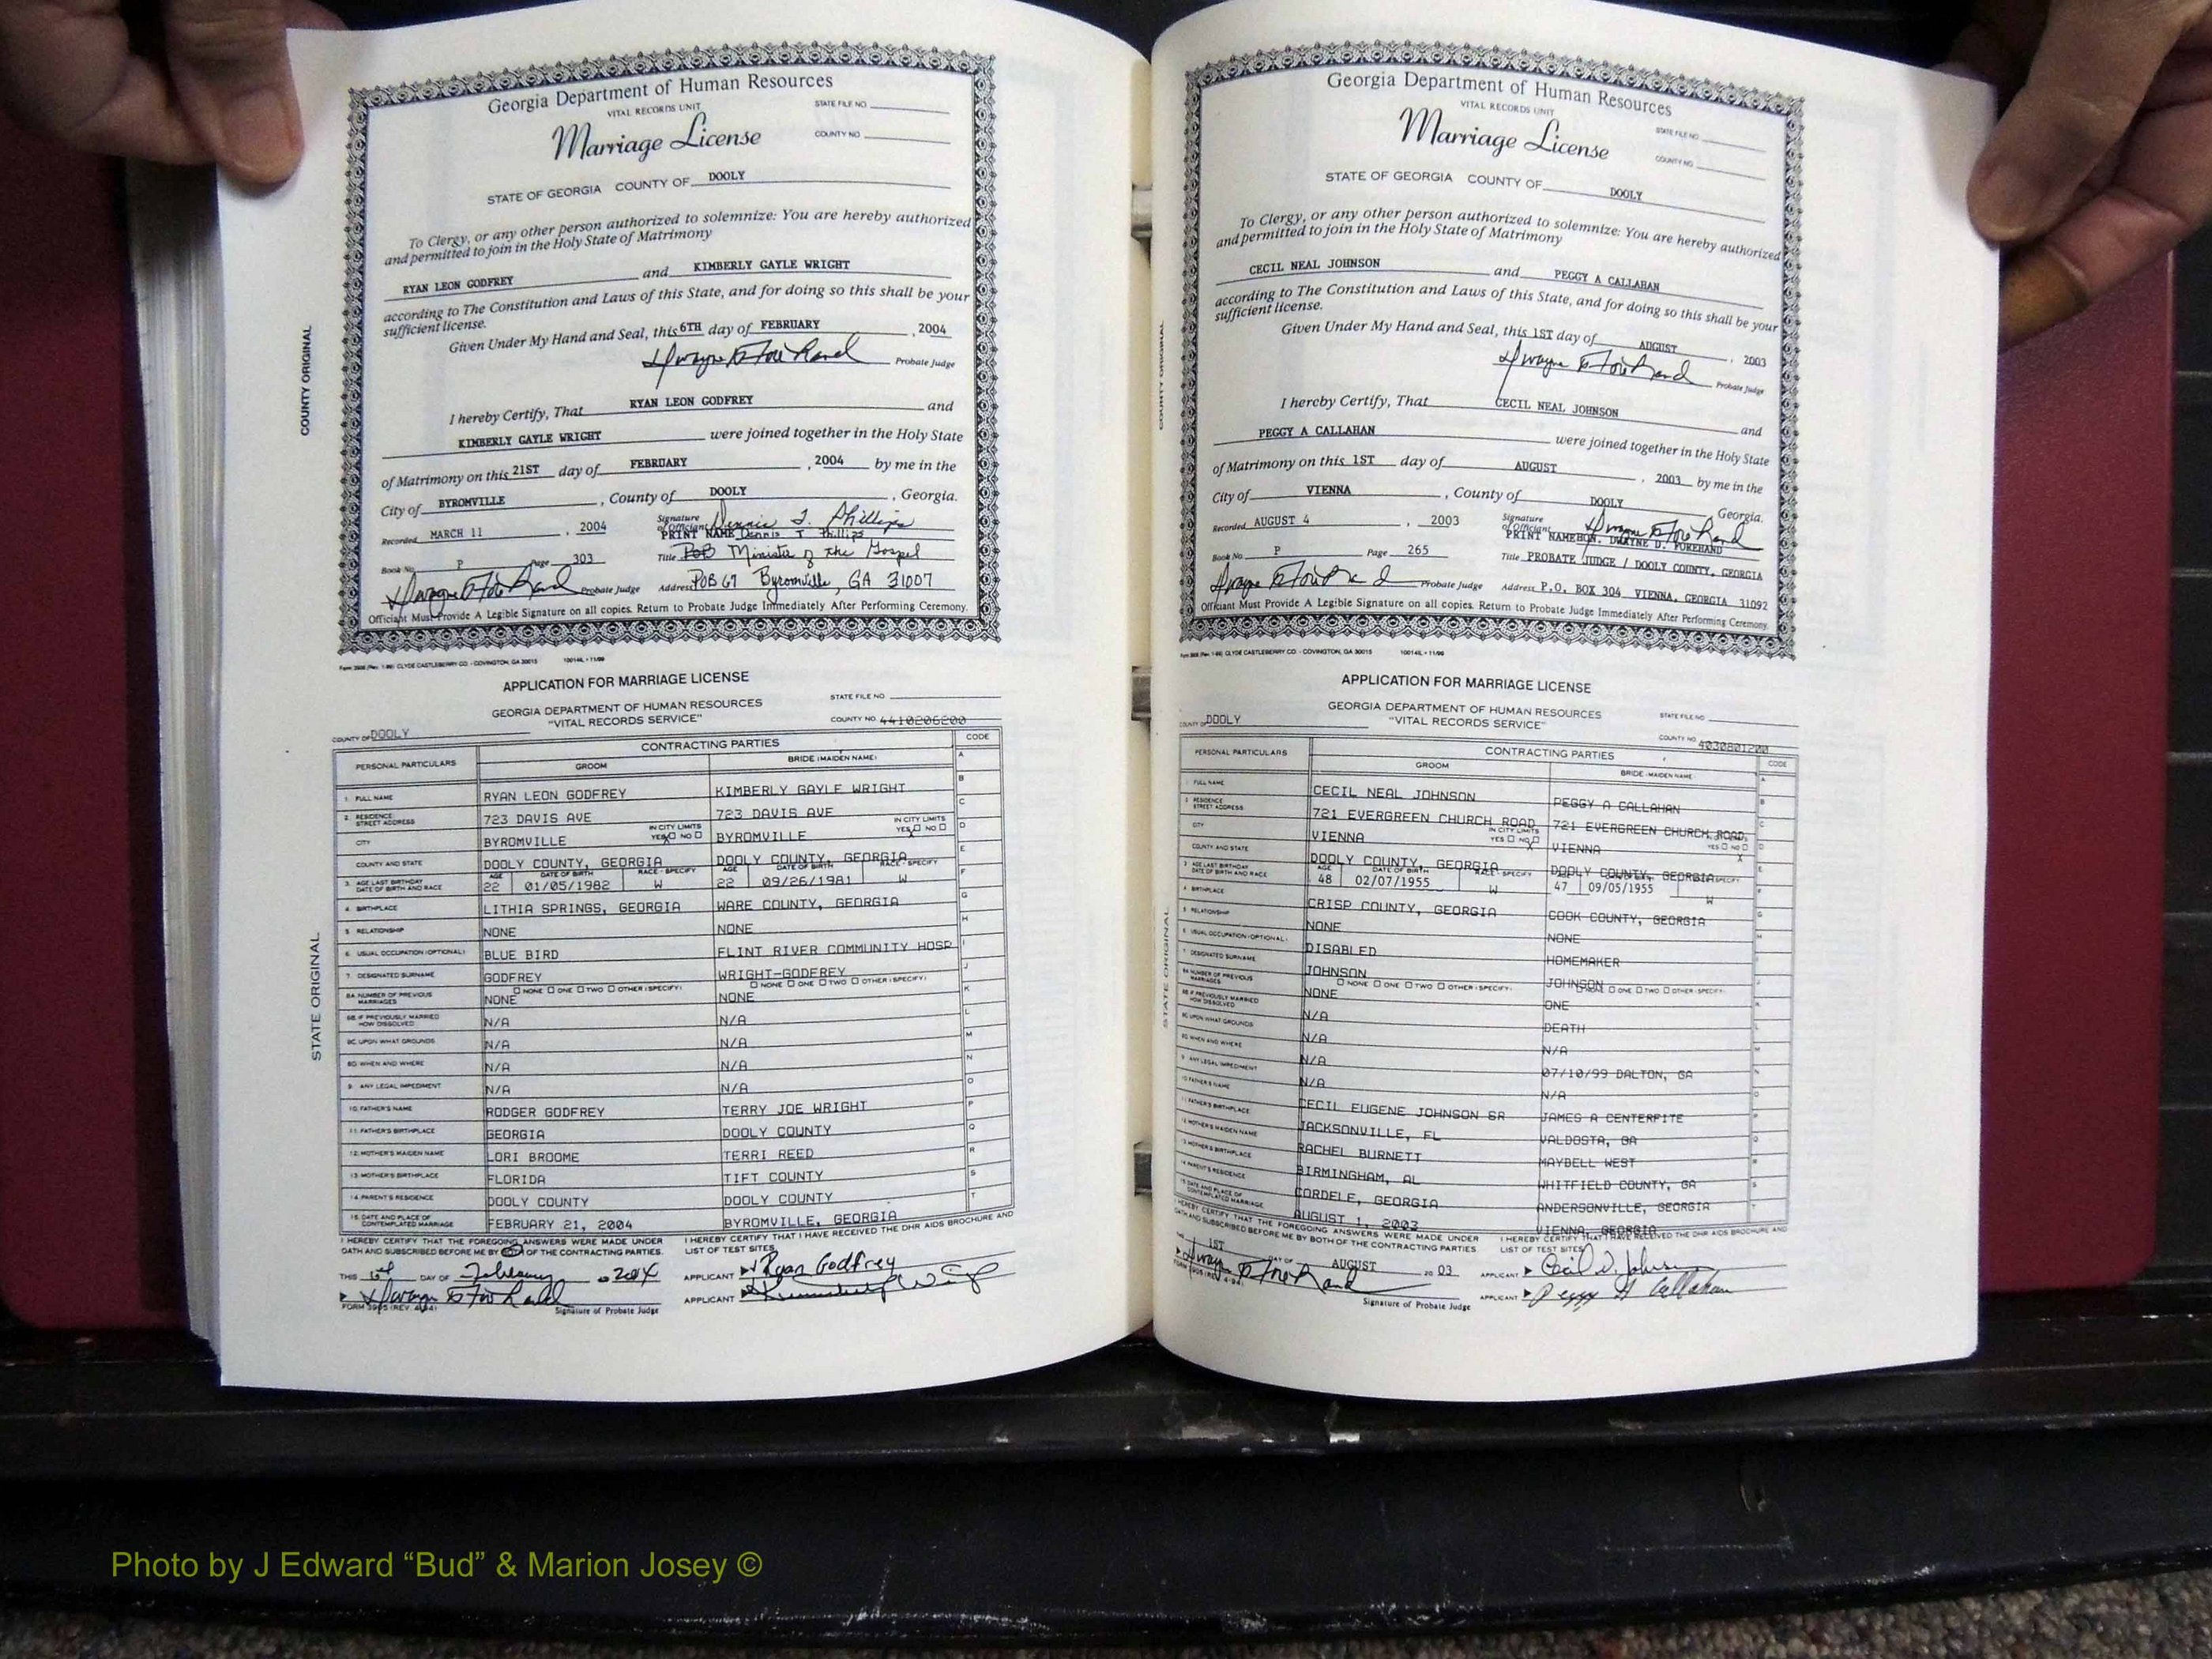 Georgia Department of Human Resources
VITAL RECORDS UNIT
STATE FILE NO.
Marriage License
COUNTY NO.
STATE OF GEORGIA COUNTY OF DOOLY
To Clergy, or any other person authorized to solemnize: You are hereby authorized
and permitted to join in the Holy State of Matrimony
RYAN LEON GODFREY and KIMBERLY GAYLE WRIGHT
according to The Constitution and Laws of this State, and for doing so this shall be your
sufficient license.
Given Under My Hand and Seal, this 6TH day of FEBRUARY , 2004
Probate Judge
I hereby Certify, That RYAN LEON GODFREY and
KIMBERLY GAYLE WRIGHT were joined together in the Holy State
of Matrimony on this 21ST day of FEBRUARY , 2004 by me in the
City of BYROMVILLE , County of DOOLY , Georgia.
Recorded MARCH 11 , 2004 Signature of Officiant Dennis T. Phillips
PRINT NAME Dennis T Phillips
Book No. P Page 303 Title POB Minister of the Gospel
Probate Judge Address POB 67 Byromville, GA 31007
Officiant Must Provide A Legible Signature on all copies. Return to Probate Judge Immediately After Performing Ceremony.
COUNTY ORIGINAL
Form 3908 (Rev. 1-99) CLYDE CASTLEBERRY CO. - COVINGTON, GA 30015 10014L • 11/99
APPLICATION FOR MARRIAGE LICENSE
GEORGIA DEPARTMENT OF HUMAN RESOURCES
"VITAL RECORDS SERVICE"
STATE FILE NO.
COUNTY NO. 4410206200
COUNTY OF DOOLY
PERSONAL PARTICULARS CONTRACTING PARTIES CODE
GROOM BRIDE (MAIDEN NAME)
1. FULL NAME RYAN LEON GODFREY KIMBERLY GAYLE WRIGHT
2. RESIDENCE STREET ADDRESS 723 DAVIS AVE 723 DAVIS AVE
CITY BYROMVILLE IN CITY LIMITS YES X NO BYROMVILLE IN CITY LIMITS YES X NO
COUNTY AND STATE DOOLY COUNTY, GEORGIA DOOLY COUNTY, GEORGIA
3. AGE LAST BIRTHDAY DATE OF BIRTH AND RACE AGE 22 DATE OF BIRTH 01/05/1982 RACE - SPECIFY W AGE 22 DATE OF BIRTH 09/26/1981 RACE - SPECIFY W
4. BIRTHPLACE LITHIA SPRINGS, GEORGIA WARE COUNTY, GEORGIA
5. RELATIONSHIP NONE NONE
6. USUAL OCCUPATION (OPTIONAL) BLUE BIRD FLINT RIVER COMMUNITY HOSP
7. DESIGNATED SURNAME GODFREY WRIGHT-GODFREY
8A. NUMBER OF PREVIOUS MARRIAGES NONE ONE TWO OTHER (SPECIFY) NONE NONE ONE TWO OTHER (SPECIFY) NONE
8B. IF PREVIOUSLY MARRIED HOW DISSOLVED N/A N/A
8C. UPON WHAT GROUNDS N/A N/A
8D. WHEN AND WHERE N/A N/A
9. ANY LEGAL IMPEDIMENT N/A N/A
10. FATHER'S NAME RODGER GODFREY TERRY JOE WRIGHT
11. FATHER'S BIRTHPLACE GEORGIA DOOLY COUNTY
12. MOTHER'S MAIDEN NAME LORI BROOME TERRI REED
13. MOTHER'S BIRTHPLACE FLORIDA TIFT COUNTY
14. PARENT'S RESIDENCE DOOLY COUNTY DOOLY COUNTY
15. DATE AND PLACE OF CONTEMPLATED MARRIAGE FEBRUARY 21, 2004 BYROMVILLE, GEORGIA
I HEREBY CERTIFY THAT THE FOREGOING ANSWERS WERE MADE UNDER
OATH AND SUBSCRIBED BEFORE ME BY BOTH OF THE CONTRACTING PARTIES.
I HEREBY CERTIFY THAT I HAVE RECEIVED THE DHR AIDS BROCHURE AND
LIST OF TEST SITES.
THIS 6th DAY OF February 2004 APPLICANT Ryan Godfrey
FORM 3905 (REV. 4-94) Signature of Probate Judge APPLICANT
STATE ORIGINAL
Georgia Department of Human Resources
VITAL RECORDS UNIT
STATE FILE NO.
Marriage License
COUNTY NO.
STATE OF GEORGIA COUNTY OF DOOLY
To Clergy, or any other person authorized to solemnize: You are hereby authorized
and permitted to join in the Holy State of Matrimony
CECIL NEAL JOHNSON and PEGGY A CALLAHAN
according to The Constitution and Laws of this State, and for doing so this shall be your
sufficient license.
Given Under My Hand and Seal, this 1ST day of AUGUST , 2003
Probate Judge
I hereby Certify, That CECIL NEAL JOHNSON and
PEGGY A CALLAHAN were joined together in the Holy State
of Matrimony on this 1ST day of AUGUST , 2003 by me in the
City of VIENNA , County of DOOLY Georgia.
Recorded AUGUST 4 , 2003 Signature of Officiant
PRINT NAME HON. DWAYNE D. FOREHAND
Book No. P Page 265 Title PROBATE JUDGE / DOOLY COUNTY, GEORGIA
Probate Judge Address P.O. BOX 304 VIENNA, GEORGIA 31092
Officiant Must Provide A Legible Signature on all copies. Return to Probate Judge Immediately After Performing Ceremony.
COUNTY ORIGINAL
Form 3908 (Rev. 1-99) CLYDE CASTLEBERRY CO. - COVINGTON, GA 30015 10014L • 11/99
APPLICATION FOR MARRIAGE LICENSE
GEORGIA DEPARTMENT OF HUMAN RESOURCES
"VITAL RECORDS SERVICE"
STATE FILE NO.
COUNTY NO. 4030801200
COUNTY OF DOOLY
PERSONAL PARTICULARS CONTRACTING PARTIES CODE
GROOM BRIDE (MAIDEN NAME)
1. FULL NAME CECIL NEAL JOHNSON PEGGY A CALLAHAN
2. RESIDENCE STREET ADDRESS 721 EVERGREEN CHURCH ROAD 721 EVERGREEN CHURCH ROAD
CITY VIENNA IN CITY LIMITS YES NO X VIENNA YES NO X
COUNTY AND STATE DOOLY COUNTY, GEORGIA DOOLY COUNTY, GEORGIA
3. AGE LAST BIRTHDAY DATE OF BIRTH AND RACE AGE 48 DATE OF BIRTH 02/07/1955 RACE - SPECIFY W 47 09/05/1955 W
4. BIRTHPLACE CRISP COUNTY, GEORGIA COOK COUNTY, GEORGIA
5. RELATIONSHIP NONE NONE
6. USUAL OCCUPATION (OPTIONAL) DISABLED HOMEMAKER
7. DESIGNATED SURNAME JOHNSON JOHNSON
8A. NUMBER OF PREVIOUS MARRIAGES NONE ONE TWO OTHER (SPECIFY) NONE NONE ONE TWO OTHER (SPECIFY) ONE
8B. IF PREVIOUSLY MARRIED HOW DISSOLVED N/A DEATH
8C. UPON WHAT GROUNDS N/A N/A
8D. WHEN AND WHERE N/A 07/10/99 DALTON, GA
9. ANY LEGAL IMPEDIMENT N/A N/A
10. FATHER'S NAME CECIL EUGENE JOHNSON SR JAMES A CENTERFITE
11. FATHER'S BIRTHPLACE JACKSONVILLE, FL VALDOSTA, GA
12. MOTHER'S MAIDEN NAME RACHEL BURNETT MAYBELL WEST
13. MOTHER'S BIRTHPLACE BIRMINGHAM, AL WHITFIELD COUNTY, GA
14. PARENT'S RESIDENCE CORDELE, GEORGIA ANDERSONVILLE, GEORGIA
15. DATE AND PLACE OF CONTEMPLATED MARRIAGE AUGUST 1, 2003 VIENNA, GEORGIA
I HEREBY CERTIFY THAT THE FOREGOING ANSWERS WERE MADE UNDER
OATH AND SUBSCRIBED BEFORE ME BY BOTH OF THE CONTRACTING PARTIES.
I HEREBY CERTIFY THAT I HAVE RECEIVED THE DHR AIDS BROCHURE AND
LIST OF TEST SITES.
THIS 1ST DAY OF AUGUST 20 03 APPLICANT
FORM 3905 (REV. 4-94) Signature of Probate Judge APPLICANT Peggy A Callahan
STATE ORIGINAL
Photo by J Edward “Bud” & Marion Josey ©